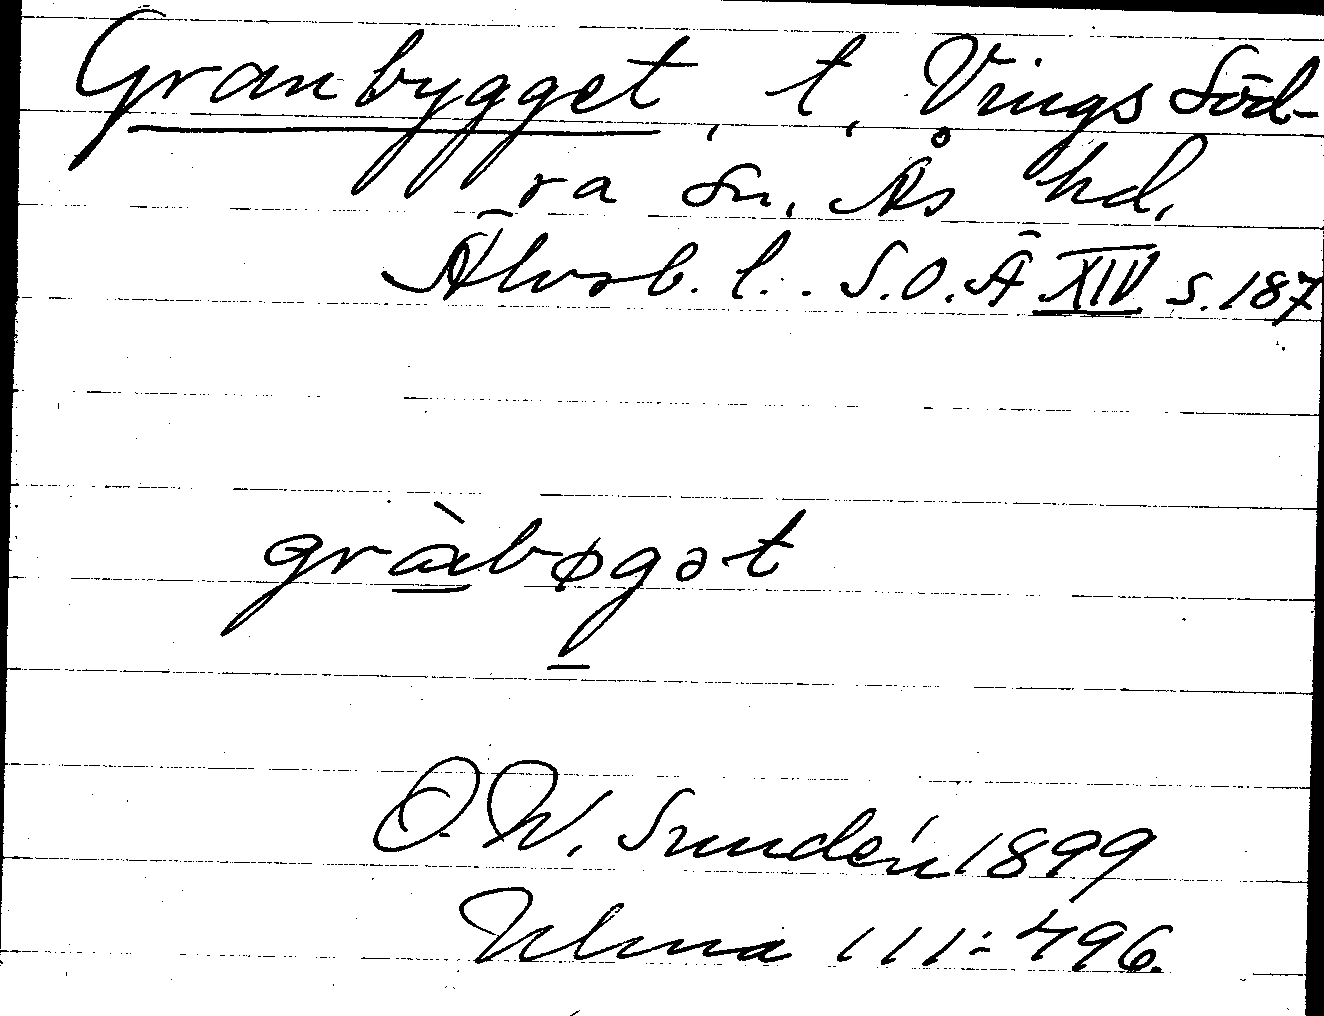 Granbygget, t, Vings Söd-
ra sn. Ås hd,
Älvsb. l. . S.O.Ä XIV s. 187
gràbøgət
O. W. Sundén 1899
Ulma 111:496.